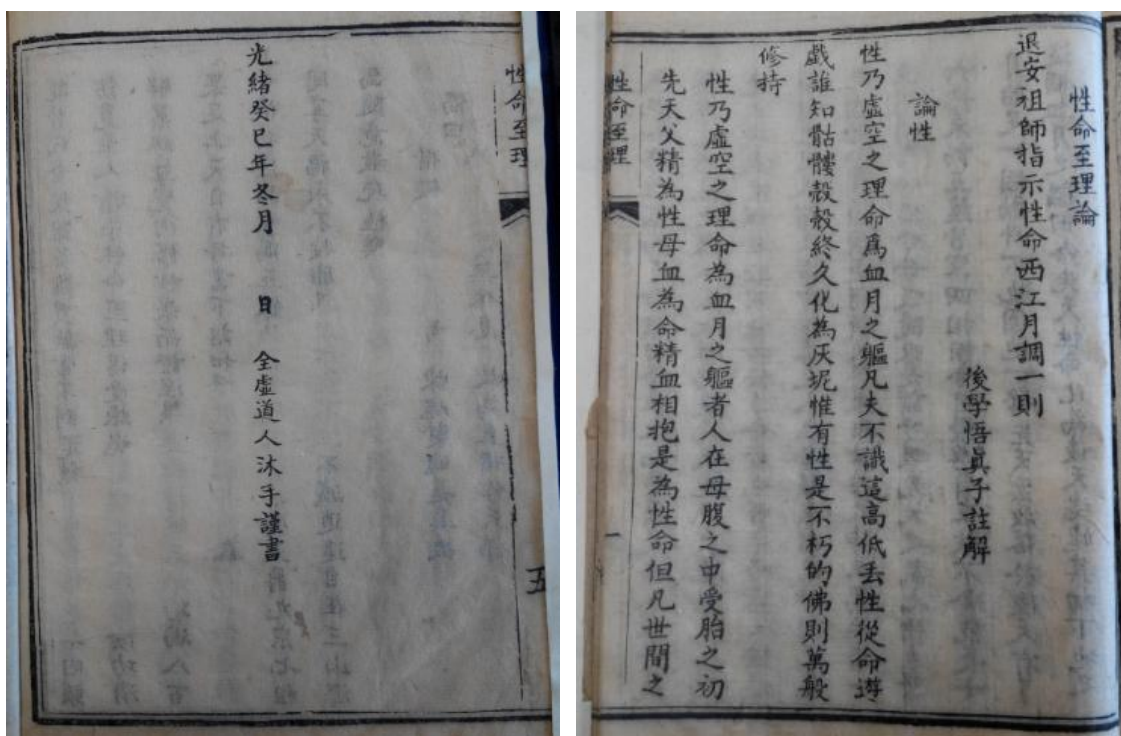 性命至理論
退安祖師指示性命西江月調一則
後學悟眞子註解
論性
性乃虛空之理命爲血月之軀凡夫不識這高低丟性從命遊
戲誰知骷髏殼殼終久化為灰坭惟有性是不朽的佛則萬般
修持
性乃虛空之理命為血月之軀者人在母腹之中受胎之初
先天父精為性母血為命精血相抱是為性命但凡世間之
性命至理 一
性命至理 五
光緒癸巳年冬月 日 全虛道人沐手謹書